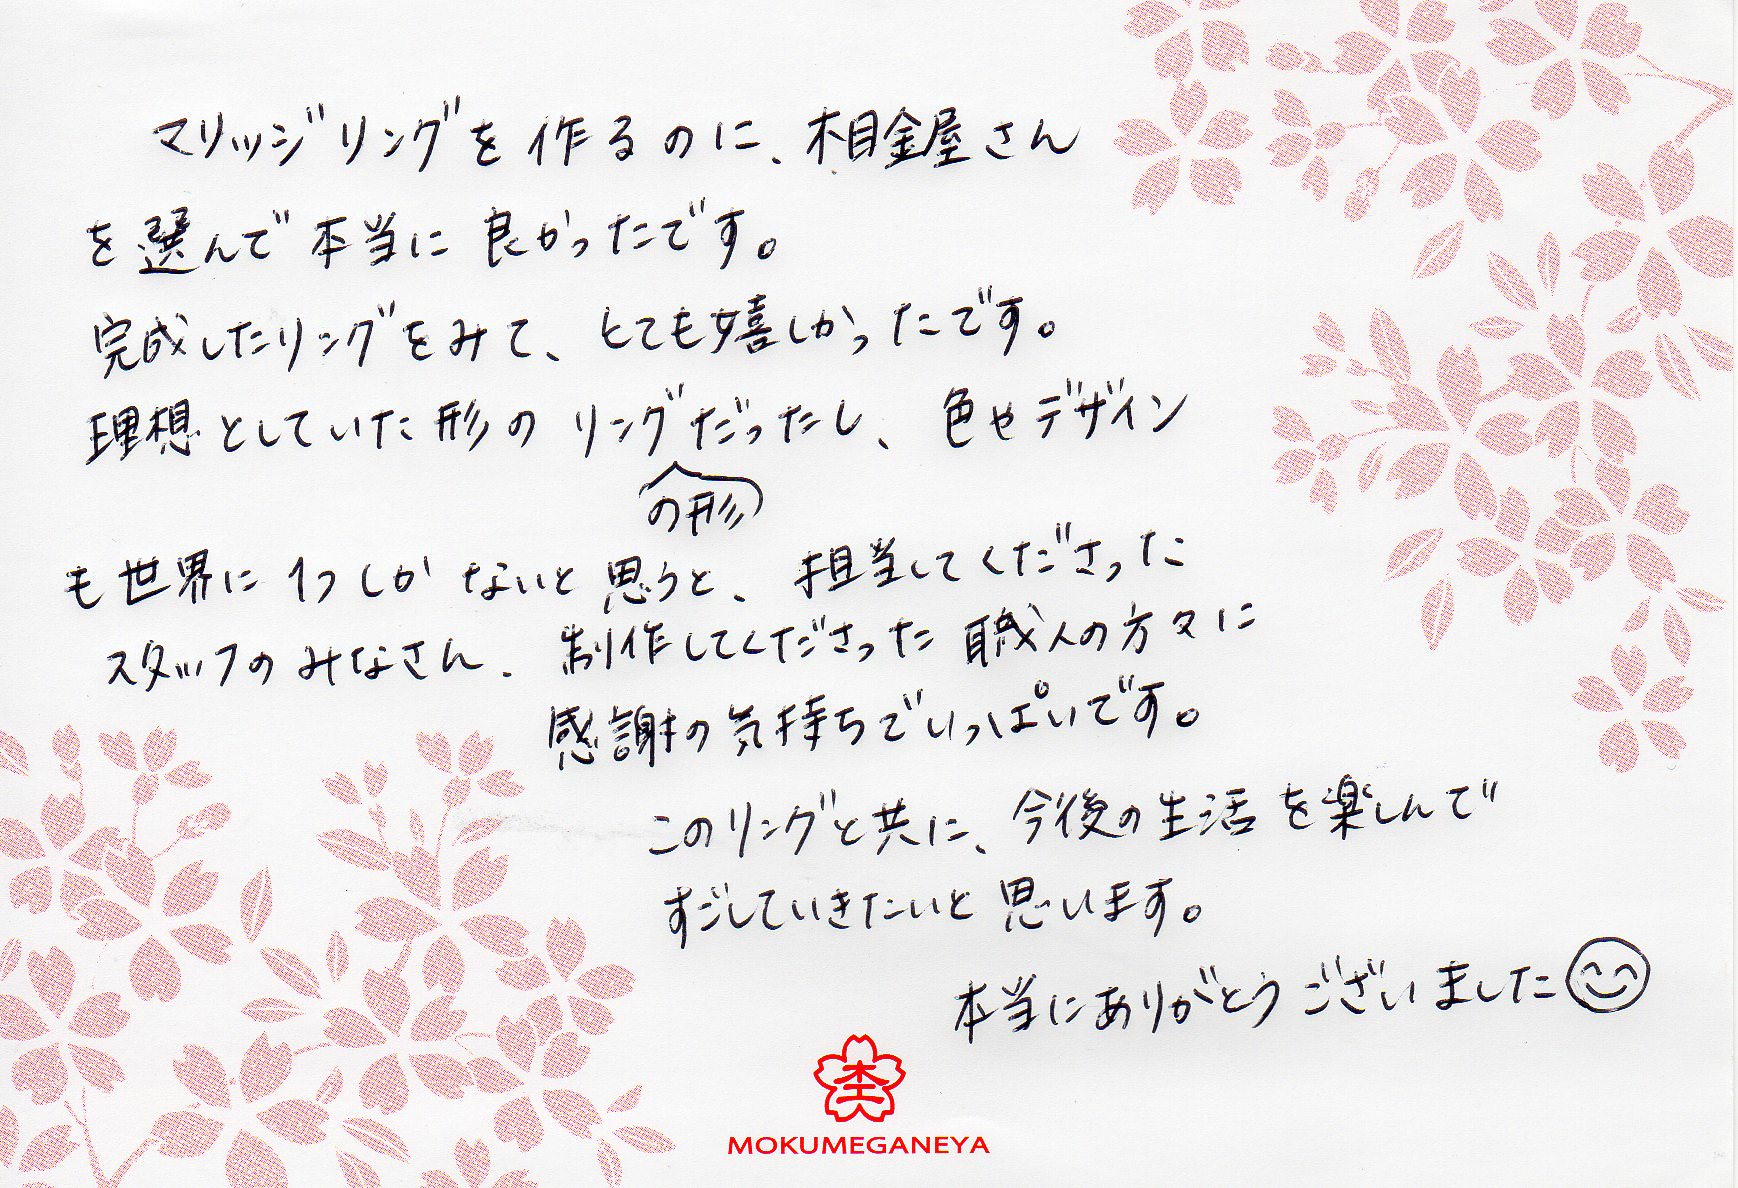 マリッジリングを作るのに、木目金屋さん
を選んで本当に良かったです。
完成したリングをみて、とても嬉しかったです。
理想としていた形のリングだったし、色やデザイン
の形
も世界に1つしかないと思うと、担当してくださった
スタッフのみなさん、制作してくださった職人の方々に
感謝の気持ちでいっぱいです。
このリングと共に、今後の生活を楽しんで
すごしていきたいと思います。
本当にありがとうございました
MOKUMEGANEYA